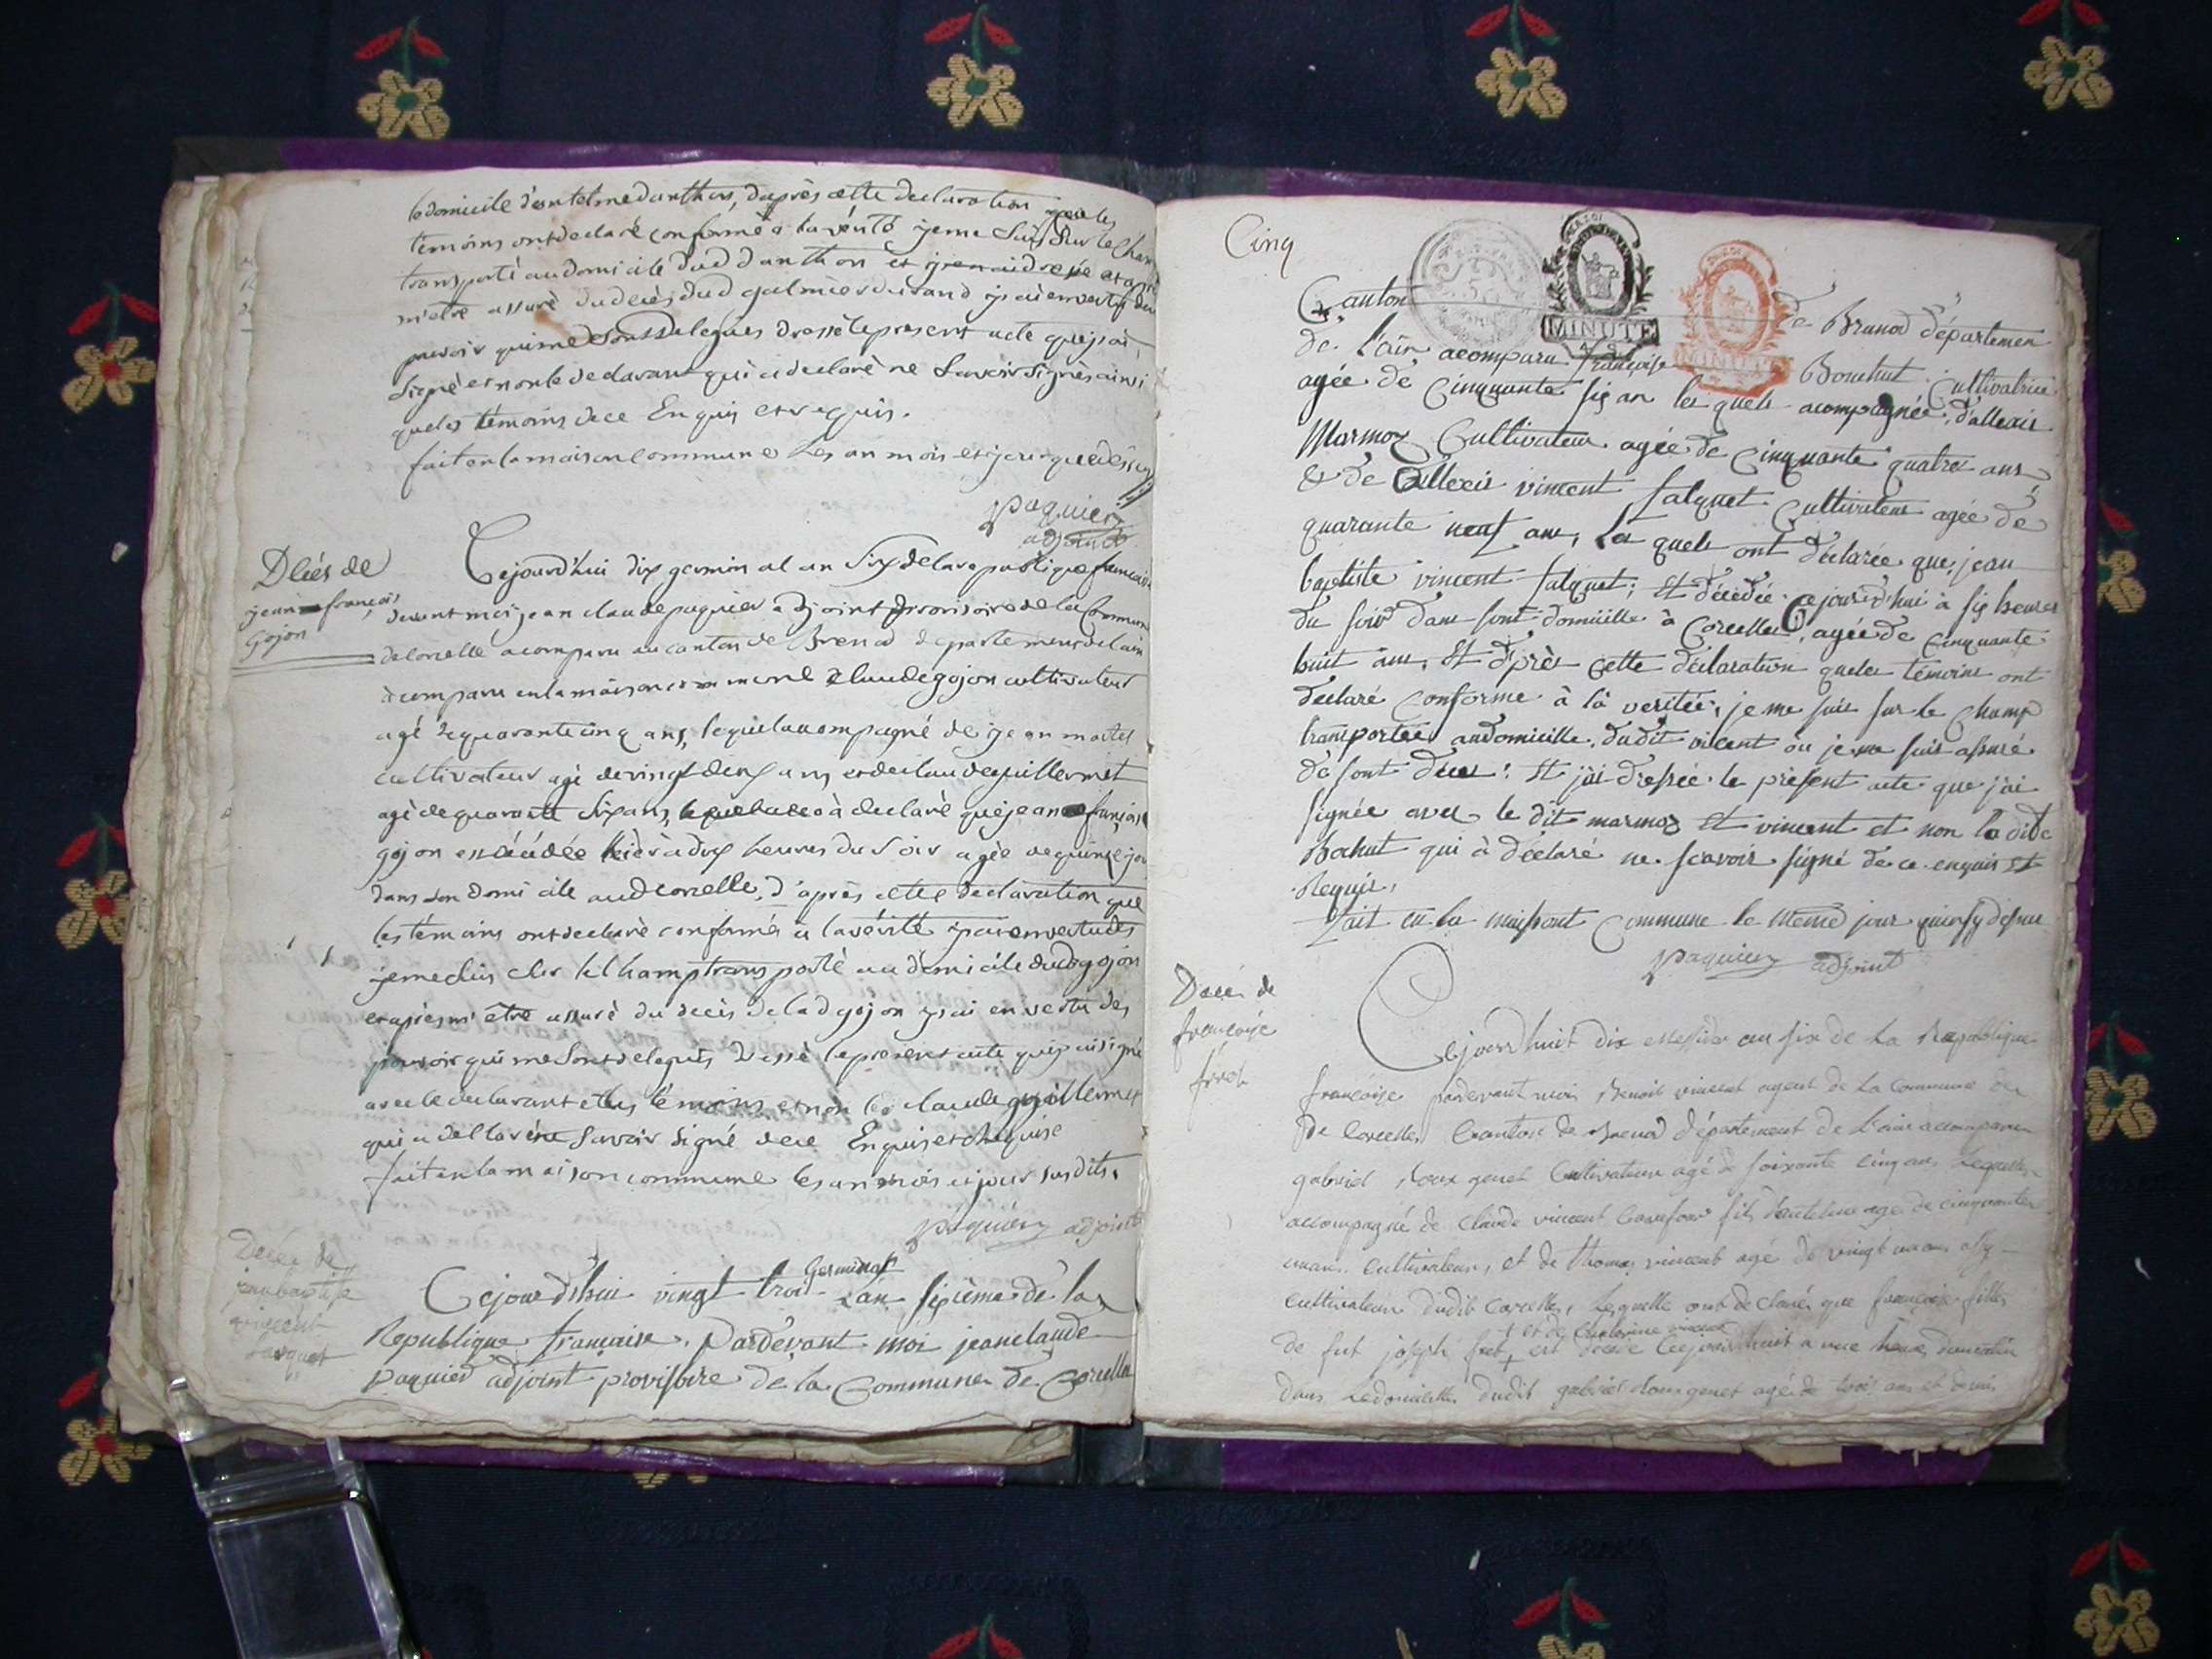 le domicile d'entelme danthon, daprès cette declaration que les
temoins ont declaré conforme à la vérité je me suis sur le cham
transporté au domicile dud danthon et
m'etre assuré du deces dud galmier durand j'ai en vertu des
pouvoir qui me sont delegues dressé le present acte que j'ai
signé et non le declarant qui a declaré ne savoir signer ainsi
que les témoins de ce Enquis et requis.
fait en la maison commune les an mois et jour que dessus
paquier
adjoint
Décès de
jean françois
gojon
Cejourd'hui dix germinal an Six de la republique francaise
devant moi jean claude paquier adjoint provisoire de la Commune
de Corcelle acomparu au canton de Brenod departement de l'ain
acomparu en la maison commune claude gojon cultivateur
agé de quarante cinq ans, lequel accompagné de jean martel
cultivateur agé de vingt deux ans et de claude guillermet
agé de quarante six ans, à declaré que jean françois
gojon est décédée hièr à dix heures du soir agée de quinze jo
dans son domicile aud Corcelle, d'après cette declaration que
les témoins ont declaré conforme à la vérité j'ai en vertu des
je me suis sur le champ transporté au domicile dud gojon
et après m'être assuré du decès de lad gojon j'ai en vertu des
pouvoir qui me sont delegués dressé le present acte que j'ai signé
avec le declarant et les témoins et non le claude guillermet
qui a declaré ne savoir signé de ce Enquis et Requise
fait en la maison commune les an mois et jour susdits.
paquier adjoint
Décès de
jean baptiste
vincent
falquet
Germinal
Cejourd'hui vingt trois L'an sixième de la
Republique francaise. Pardevant moi jean claude
paquier adjoint provisoire de la Commune de Corcelle
Cinq
Canton de Brenod département
MINUTE MINUTE
de l'ain acomparu françoise Bouchut Cultivatrice
agée de Cinquante six an les quels acompagnée d'allexis
Marmoz Cultivateur agée de Cinquante quatre ans
& de allexis vincent falquet Cultivateur agée de
quarante neuf ans, les quels ont déclarée que jean
baptiste vincent falquet; Et décédée Cejourd'hui à six heures
du soir dans sont domicille à Corcelles, agée de Cinquante
huit ans, Et d'près cette déclaration que les témoins ont
déclaré conforme à là veritée, je me suis sur le champ
transportée au domicille dudit vicent où je me suis assuré
de sont décès: Et j'ai dressée le présent acte que j'ai
signée avec le dit marmoz Et vincent et non la dite
Bochut qui à déclaré ne scavoir signé de ce enquis Et
Requis,
Fait en la maisont Commune le meme jour qu'en sy dessu
paquier adjoint
Décès de
françoise
Cejourd huit dix messidor an six de La Republique
françoise pardevant moi Benoit vincent agent de La Commune de
de Corcelles Canton de Brenod département de L'ain acomparu
gabriel Roux genet Cultivateur agé de soixante cinq ans Lequelle
accompagné de Claude vincent Carefour fils d'antelme agé de cinquante
un ans Cultivateur, et de thomas vincent agé de vingt un ans
cultivateur dudit Corcelles, Lequelle ont declaré que françoise fille
et de Catherine vincent
de fut joseph est décédé Cejourdhuit a une heure du matin
dans Le domicille dudit gabriel Roux genet agé de trois ans et demis